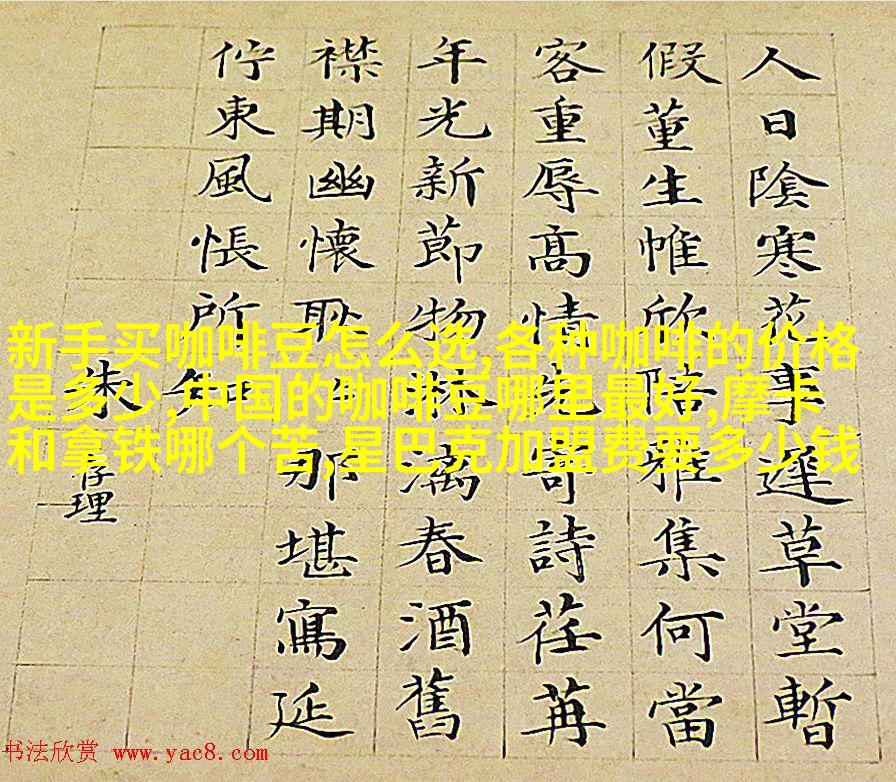 人日陰寒花事遲草堂暫
假董生帷欣陪雅集何當
客重辱高情先寄詩荏苒
年光新節物淋漓春酒舊
襟期幽懷耿耿那堪寫延
佇東風悵所知
朱存理
新手买咖啡豆怎么选,各种咖啡的价格
是多少,中国的咖啡豆哪里最好,摩卡
和拿铁哪个苦,星巴克加盟费要多少钱
书法欣赏 www.yac8.com